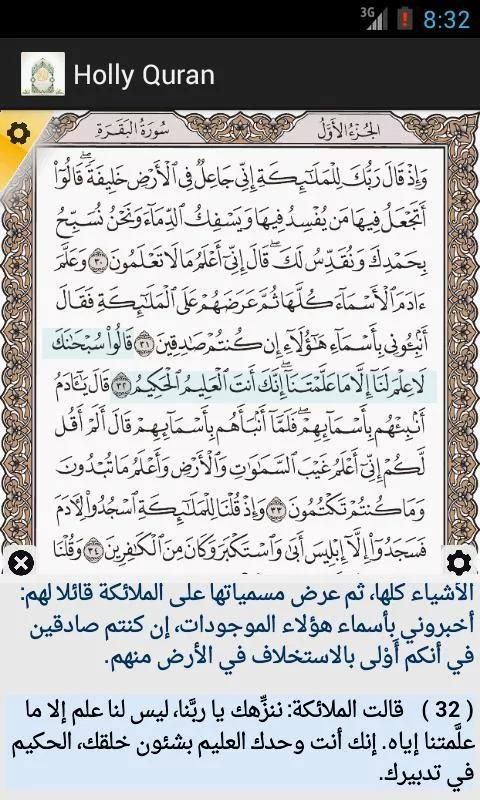 3G 8:32
Holly Quran
سُورَةُ البَقَرَةِ الجُزْءُ الأَوَّلُ
وَإِذْ قَالَ رَبُّكَ لِلْمَلَٰٓئِكَةِ إِنِّي جَاعِلٌ فِي ٱلْأَرْضِ خَلِيفَةًۖ قَالُوٓا۟
أَتَجْعَلُ فِيهَا مَن يُفْسِدُ فِيهَا وَيَسْفِكُ ٱلدِّمَآءَ وَنَحْنُ نُسَبِّحُ
بِحَمْدِكَ وَنُقَدِّسُ لَكَۖ قَالَ إِنِّيٓ أَعْلَمُ مَا لَا تَعْلَمُونَ ٣٠ وَعَلَّمَ
ءَادَمَ ٱلْأَسْمَآءَ كُلَّهَا ثُمَّ عَرَضَهُمْ عَلَى ٱلْمَلَٰٓئِكَةِ فَقَالَ
أَنۢبِـُٔونِي بِأَسْمَآءِ هَٰٓؤُلَآءِ إِن كُنتُمْ صَٰدِقِينَ ٣١ قَالُوا۟ سُبْحَٰنَكَ
لَا عِلْمَ لَنَآ إِلَّا مَا عَلَّمْتَنَآۖ إِنَّكَ أَنتَ ٱلْعَلِيمُ ٱلْحَكِيمُ ٣٢ قَالَ يَٰٓـَٔادَمُ
أَنۢبِئْهُم بِأَسْمَآئِهِمْۖ فَلَمَّآ أَنۢبَأَهُم بِأَسْمَآئِهِمْ قَالَ أَلَمْ أَقُل
لَّكُمْ إِنِّيٓ أَعْلَمُ غَيْبَ ٱلسَّمَٰوَٰتِ وَٱلْأَرْضِ وَأَعْلَمُ مَا تُبْدُونَ
وَمَا كُنتُمْ تَكْتُمُونَ ٣٣ وَإِذْ قُلْنَا لِلْمَلَٰٓئِكَةِ ٱسْجُدُوا۟ لِـَٔادَمَ
فَسَجَدُوٓا۟ إِلَّآ إِبْلِيسَ أَبَىٰ وَٱسْتَكْبَرَ وَكَانَ مِنَ ٱلْكَٰفِرِينَ ٣٤ وَقُلْنَا
الأشياء كلها، ثم عرض مسمياتها على الملائكة قائلا لهم:
أخبروني بأسماء هؤلاء الموجودات، إن كنتم صادقين
في أنكم أَوْلى بالاستخلاف في الأرض منهم.
( 32 ) قالت الملائكة: ننزِّهك يا ربَّنا، ليس لنا علم إلا ما
علَّمتنا إياه. إنك أنت وحدك العليم بشئون خلقك، الحكيم
في تدبيرك.